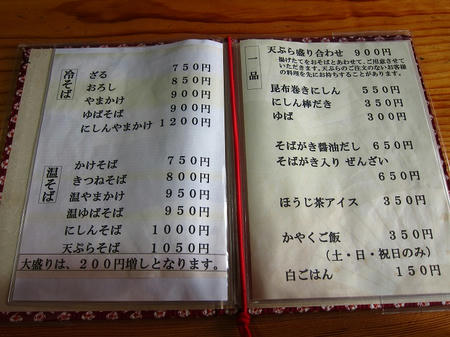 冷そば
ざる 750円
おろし 850円
やまかけ 900円
ゆばそば 900円
にしんやまかけ 1200円
温そば
かけそば 750円
きつねそば 800円
温やまかけ 950円
温ゆばそば 950円
にしんそば 1000円
天ぷらそば 1050円
大盛りは、200円増しとなります。
一品
天ぷら盛り合わせ 900円
揚げたてをおそばとあわせて、ご用意させて
いただきます。天ぷらのご注文のないお客様
の料理を先にお持ちすることがあります。
昆布巻きにしん 550円
にしん棒だき 350円
ゆば 300円
そばがき醤油だし 650円
そばがき入り ぜんざい
650円
ほうじ茶アイス 350円
かやくご飯 350円
(土・日・祝日のみ)
白ごはん 150円